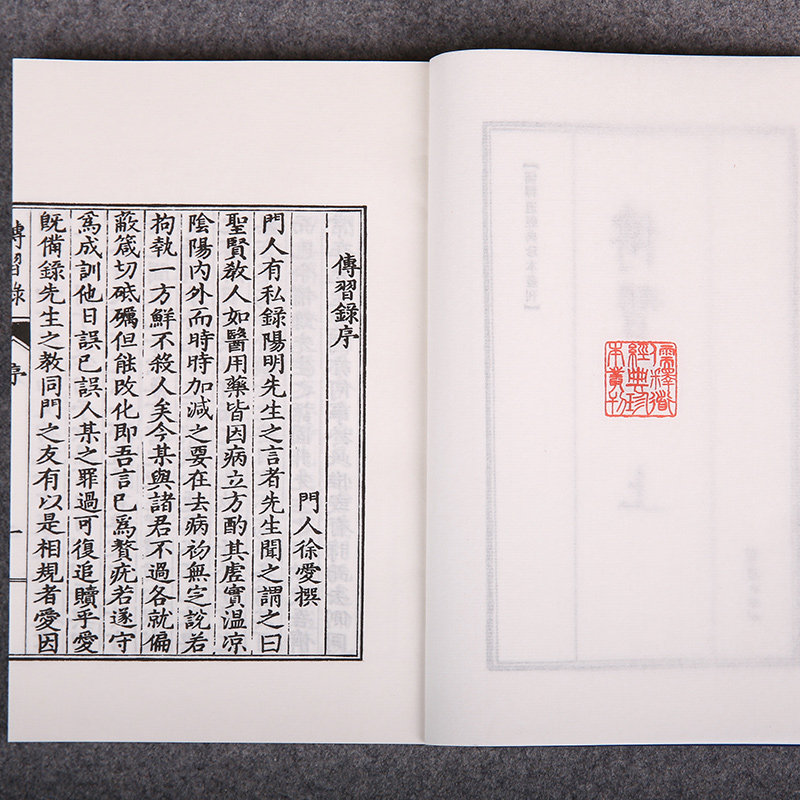 儒釋道
經典珍
本叢刊
傳習錄序
門人徐愛撰
門人有私錄陽明先生之言者先生聞之謂之曰
聖賢敎人如醫用藥皆因病立方酌其虛實温凉
陰陽内外而時時加減之要在去病初無定說若
拘執一方鮮不殺人矣今某與諸君不過各就偏
蔽箴切砥礪但能改化即吾言已爲贅疣若遂守
爲成訓他日誤已誤人某之罪過可復追贖乎愛
既備錄先生之教同門之友有以是相規者愛因
傳習錄 序 一